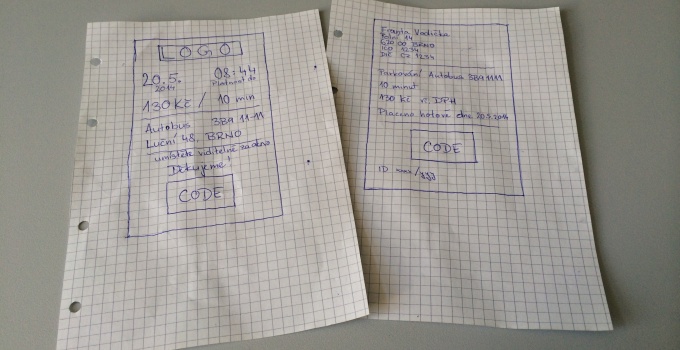 LOGO
20.5. 08:44
2014 Platnost do
130 Kč / 10 min
Autobus 3B9 11-11
Luční 48, BRNO
umístěte viditelně za okno
Děkujeme!
CODE
Franta Vodička
Polní 14
620 00 BRNO
IČO 1234
DIČ CZ 1234
Parkování Autobus 3B9 1111
10 minut
130 Kč vč. DPH
Placeno hotově dne 20.5.2014
CODE
ID xxxx/yyy